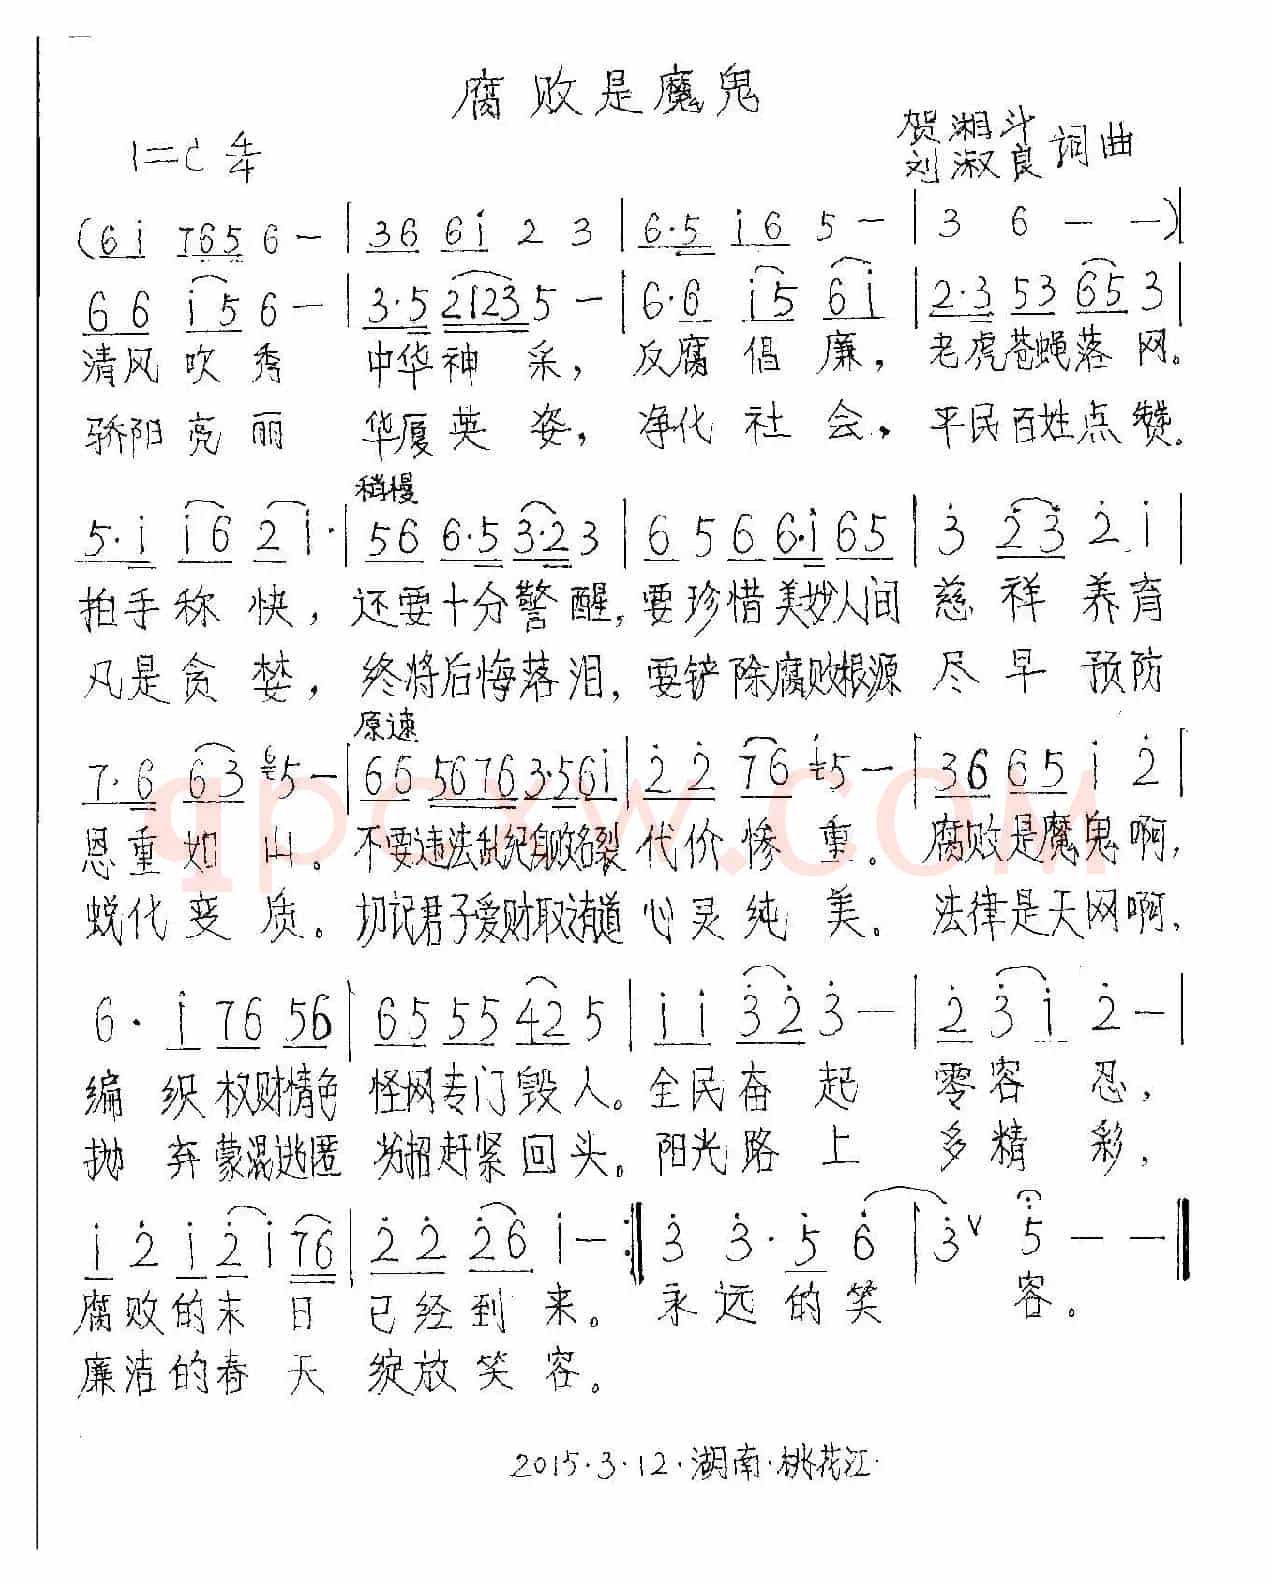 腐败是魔鬼
1=C 4/4
贺湘斗
刘淑良 词曲
(6i 765 6 - | 36 6i 2 3 | 6·5 i6 5 - | 3 6 - -)|
66 i5 6 - | 3·5 2123 5 - | 6·6 i5 6i | 2·3 53 65 3 |
清风吹秀 中华神采，反腐倡廉，老虎苍蝇落网。
骄阳亮丽 华厦英姿，净化社会，平民百姓点赞。
稍慢
5·i i6 2 i· | 56 6·5 3·2 3 | 6 5 6 6·i 65 | 3 23 2 i |
拍手称快，还要十分警醒，要珍惜美妙人间 慈祥养育
凡是贪婪，终将后悔落泪，要铲除腐败根源 尽早预防
原速
7·6 63 5 - | 66 5676 3·56i | 2 2 76 5 - | 36 65 i 2 |
恩重如山。不要违法乱纪身败名裂 代价惨重。腐败是魔鬼啊，
蜕化变质。切记君子爱财取之有道 心灵纯美。法律是天网啊，
6· i 76 56 | 65 55 42 5 | i i 32 3 - | 2 3 i 2 - |
编织权财情色 怪网专门毁人。全民奋起 零容忍，
抛弃蒙混逃匿 招赶紧回头。阳光路上 多精彩，
i 2 i 2 i 76 | 2 2 26 i - :‖ 3 3· 5 6 | 3 ∨ 5 - - ‖
腐败的末日 已经到来。永远的笑 容。
廉洁的春天 绽放笑容。
2015·3·12·湖南·桃花江·
qpcxw.com